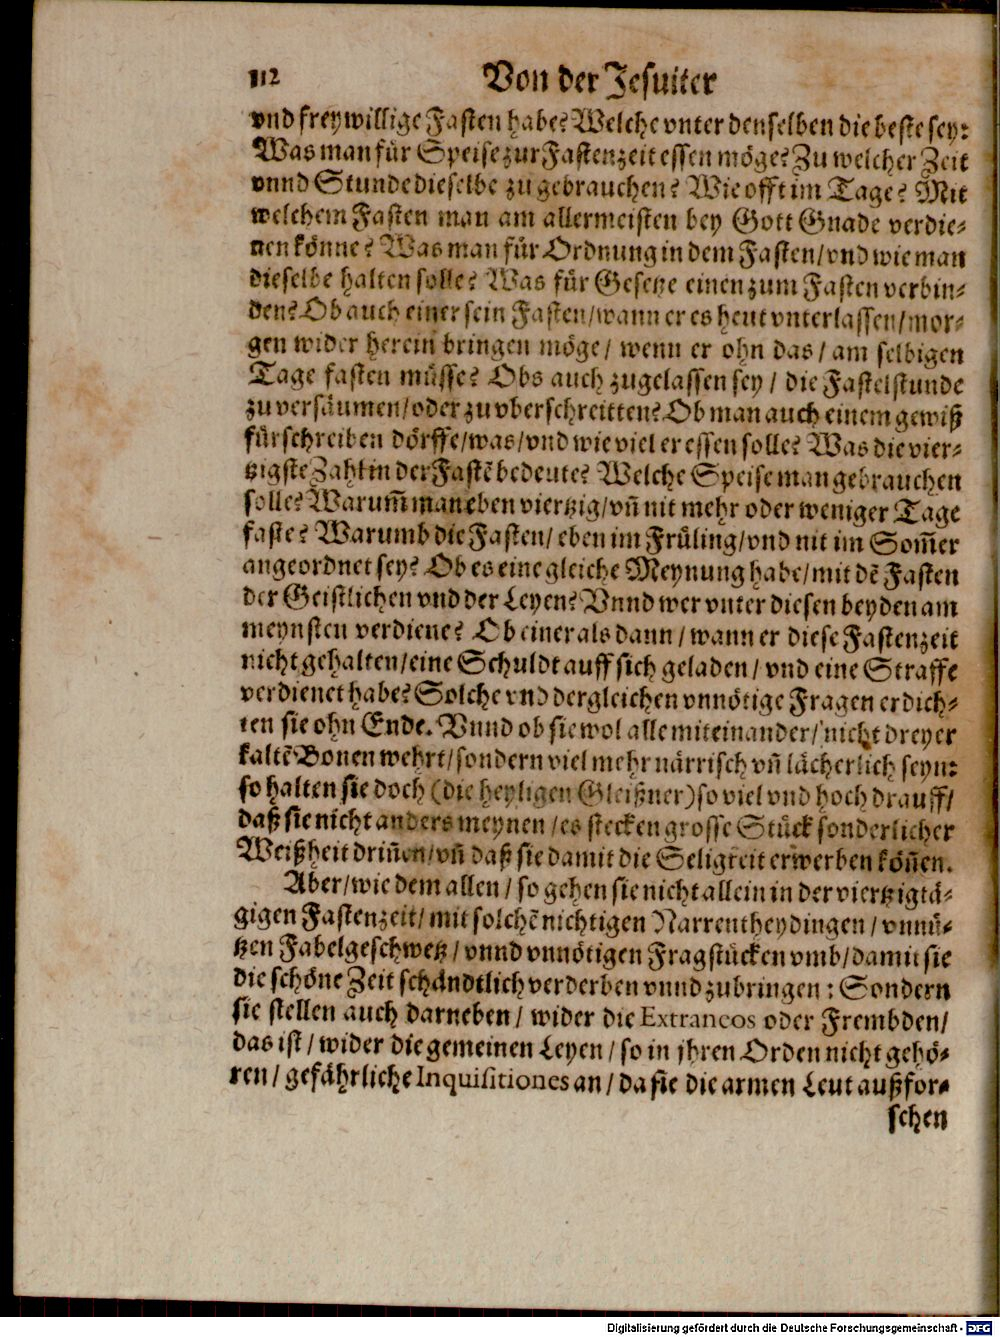 112 Von der Jesuiter
vnd freywillige Fasten habe? Welche vnter denselben die beste sey:
Was man für Speise zur Fastenzeit essen möge? Zu welcher Zeit
vnnd Stunde dieselbe zu gebrauchen? Wie offt im Tage? Mit
welchem Fasten man am allermeisten bey Gott Gnade verdie-
nen könne? Was man für Ordnung in dem Fasten/vnd wie man
dieselbe halten solle? Was für Gesetze einen zum Fasten verbin-
den? Ob auch einer sein Fasten/wann er es heut vnterlassen/mor-
gen wider herein bringen möge/ wenn er ohn das/ am selbigen
Tage fasten müsse? Obs auch zugelassen sey/ die Fastelstunde
zu versäumen/oder zu vberschreitten? Ob man auch einem gewiß
fürschreiben dörffe/was/vnd wie viel er essen solle? Was die vier-
tzigste Zahl in der Fastē bedeute? Welche Speise man gebrauchen
solle? Warum̄ man eben viertzig/vn̄ nit mehr oder weniger Tage
faste? Warumb die Fasten/ eben im Früling/vnd nit im Som̄er
angeordnet sey? Ob es eine gleiche Meynung habe/mit dē Fasten
der Geistlichen vnd der Leyen? Vnnd wer vnter diesen beyden am
meynsten verdiene? Ob einer als dann/wann er diese Fastenzeit
nicht gehalten/eine Schuldt auff sich geladen/ vnd eine Straffe
verdienet habe? Solche vnd dergleichen vnnötige Fragen erdich-
ten sie ohn Ende. Vnnd ob sie wol alle miteinander/ nicht dreyer
kaltē Bonen wehrt/sondern viel mehr närrisch vn̄ lächerlich seyn:
so halten sie doch (die heyligen Gleißner) so viel vnd hoch drauff/
daß sie nicht anders meynen/es stecken grosse Stück sonderlicher
Weißheit drin̄en/vn̄ daß sie damit die Seligkeit erwerben kön̄en.
Aber/wie dem allen/ so gehen sie nicht allein in der viertzigtä-
gigen Fastenzeit/ mit solchē nichtigen Narrentheydingen/ vnnü-
tzen Fabelgeschwetz/ vnnd vnnötigen Fragstücken vmb/damit sie
die schöne Zeit schändtlich verderben vnnd zubringen: Sondern
sie stellen auch darneben/ wider die Extraneos oder Frembden/
das ist/ wider die gemeinen Leyen/ so in jhren Orden nicht gehö-
ren/ gefährliche Inquisitiones an/ da sie die armen Leut außfor-
schen
Digitalisierung gefördert durch die Deutsche Forschungsgemeinschaft - DFG